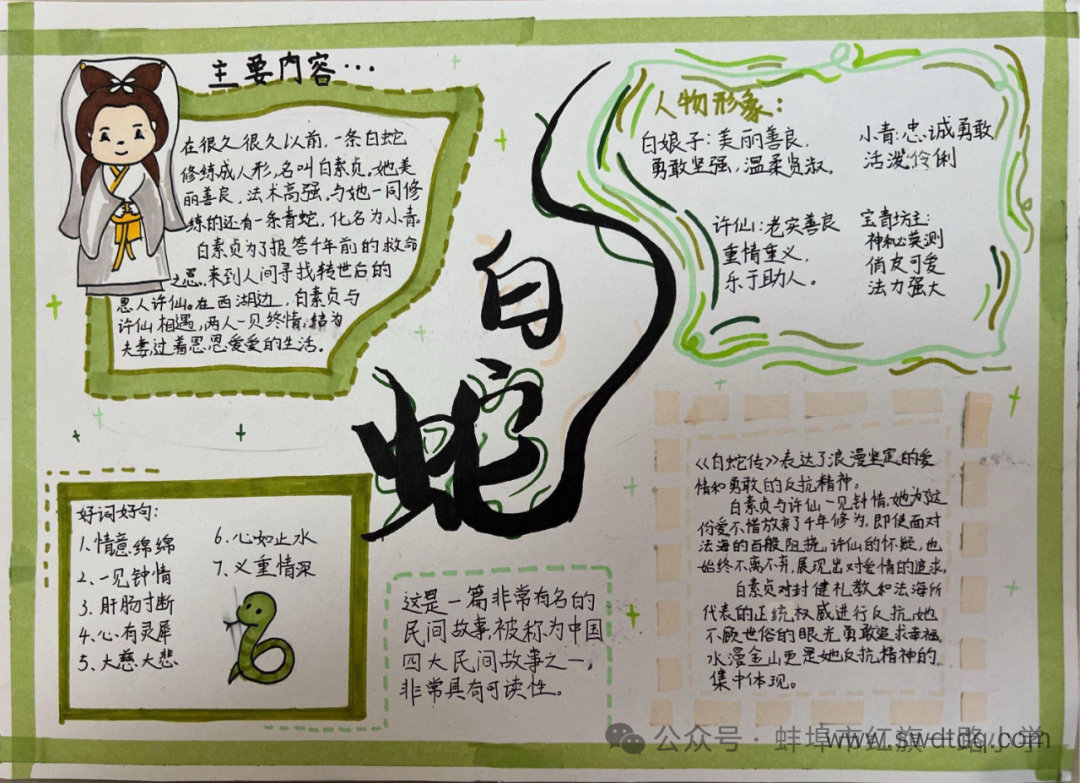 主要内容…
在很久很久以前,一条白蛇
修练成人形,名叫白素贞。她美
丽善良,法术高强。与她一同修
练的还有一条青蛇,化名为小青。
白素贞为了报答千年前的救命
之恩,来到人间寻找转世后的
恩人许仙。在西湖边,白素贞与
许仙相遇,两人一见终情,结为
夫妻,过着恩恩爱爱的生活。
白
蛇
人物形象:
白娘子:美丽善良,
勇敢坚强,温柔贤淑。
小青:忠诚勇敢
活泼伶俐
许仙:老实善良
重情重义,
乐于助人。
宝青坊主:
神秘莫测
俏皮可爱
法力强大
好词好句:
1.情意绵绵
2.一见钟情
3.肝肠寸断
4.心有灵犀
5.大慈大悲
6.心如止水
7.义重情深
这是一篇非常有名的
民间故事,被称为中国
四大民间故事之一,
非常具有可读性。
《白蛇传》表达了浪漫坚定的爱
情和勇敢的反抗精神。
白素贞与许仙一见钟情,她为了这
份爱不惜放弃了千年修为,即使面对
法海的百般阻挠,许仙的怀疑,也
始终不离不弃,展现出对爱情的追求。
白素贞对封健礼教和法海所
代表的正统权威进行反抗,她
不顾世俗的眼光,勇敢追求幸福,
水漫金山更是她反抗精神的
集中体现。
公众号·蚌埠市红旗一路小学
www.swdtdq.com